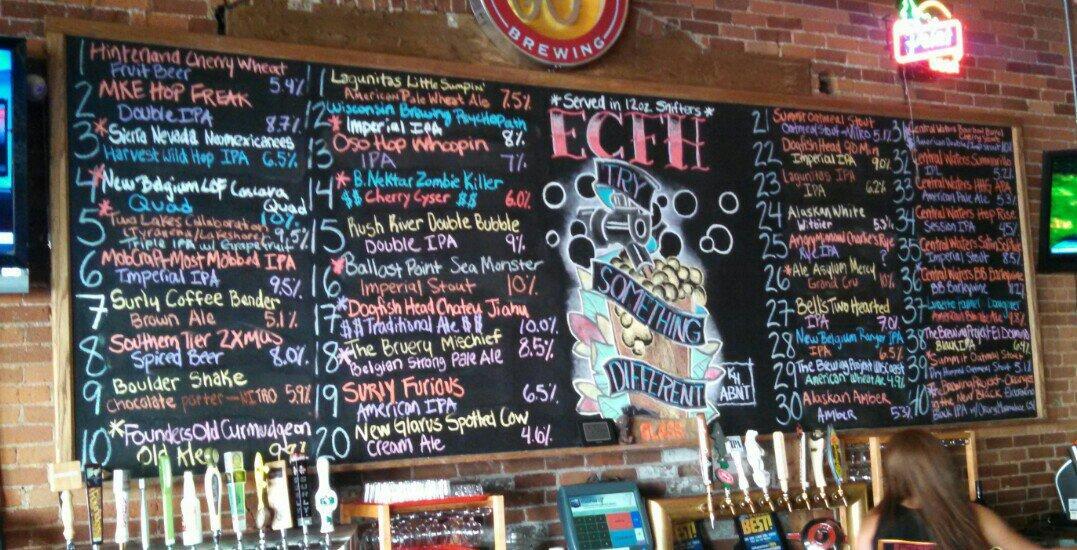 BREWING
1 Hinterland Cherry Wheat
Fruit Beer 5.4%
2 MKE HOP FREAK
Double IPA 8.7%
3 *Sierra Nevada
Harvest Wild Hop IPA 6.5%
4 *New Belgium LOF
Quad
5 *Two Lakes Collaboration
Triple IPA w/ Grapefruit 9.5%
6 MobCraft-Most Mobbed IPA
Imperial IPA 9.5%
7 Surly Coffee Bender
Brown Ale 5.1%
8 Southern Tier 2XMAS
Spiced Beer 8.0%
9 Boulder Shake
Chocolate porter-NITRO 5.9%
10 *Founders Old Curmudgeon
Old Ale
11 Lagunitas Little Sumpin'
American Pale Wheat Ale 7.5%
12 Wisconsin Brewing Psychopath
*Imperial IPA 8%
13 Oso Hop Whoopin
IPA 7%
14 *B.Nektar Zombie Killer
$$ Cherry Cyser $$ 6.0%
15 Rush River Double Bubble
Double IPA 9%
16 *Ballast Point Sea Monster
Imperial Stout 10%
17 *Dogfish Head Chateu Jiahu
$$ Traditional Ale $$ 10.0%
18 *The Bruery Mischief
Belgian Strong Pale Ale 8.5%
19 SURLY FURIOUS
American IPA 6.5%
20 New Glarus Spotted Cow
Cream Ale 4.6%
*Served in 12oz Snifters*
ECFH
TRY
SOMETHING
DIFFERENT
21 Summit Oatmeal Stout
Oatmeal Stout-Nitro 5.1%
22 Dogfish Head 90 Min
Imperial IPA 9.0%
23 Lagunitas IPA
IPA 6.2%
24 Alaskan White
Witbier 5.3%
25 Angry Minnow Charlie's Rye
Rye IPA ?
26 *Ale Asylum Mercy
Grand Cru 10%
27 Bell's Two Hearted
IPA 7.0%
28 New Belgium Ranger IPA
IPA 6.5%
29 The Brewing Projekt
American Wheat Ale 4.9%
30 Alaskan Amber
Amber 5.3%
31 Central Waters Bourbon Barrel
32 Central Waters
IPL 5.2%
33 Central Waters HHG APA
American Pale Ale 5.3%
34 Central Waters Hop Rise
Session IPA 4.5%
35 Central Waters Satin Solitude
Imperial Stout 8.5%
36 *Central Waters BB Barleywine
BB Barleywine
37
38 The Brewing Projekt
Black IPA
39 *Summit Oatmeal Stout
5.1%
40 The Brewing Projekt
BEST!
BEST!